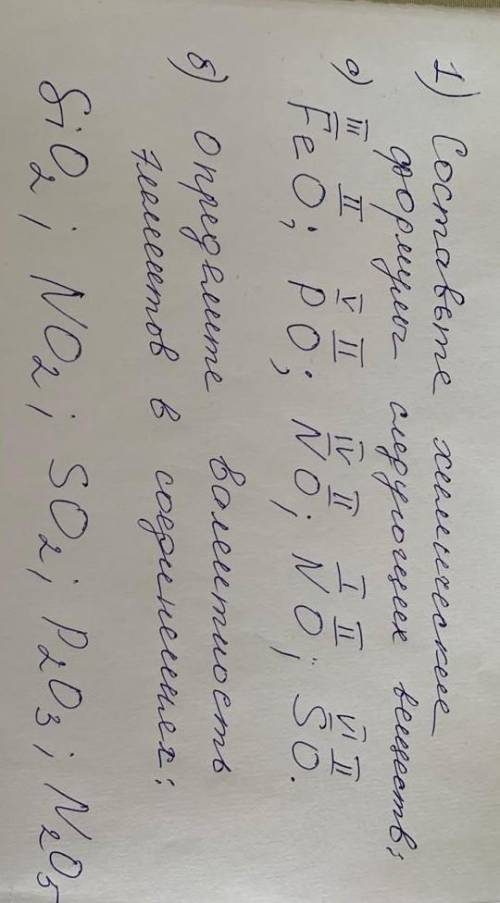 1) Составьте химические
формулы следующих веществ:
а) III II V II IV II I II VI II
FeO; PO; NO; NO; SO.
б) Определите валентность
элементов в соединениях:
SiO₂; NO₂; SO₂; P₂O₃; N₂O₅